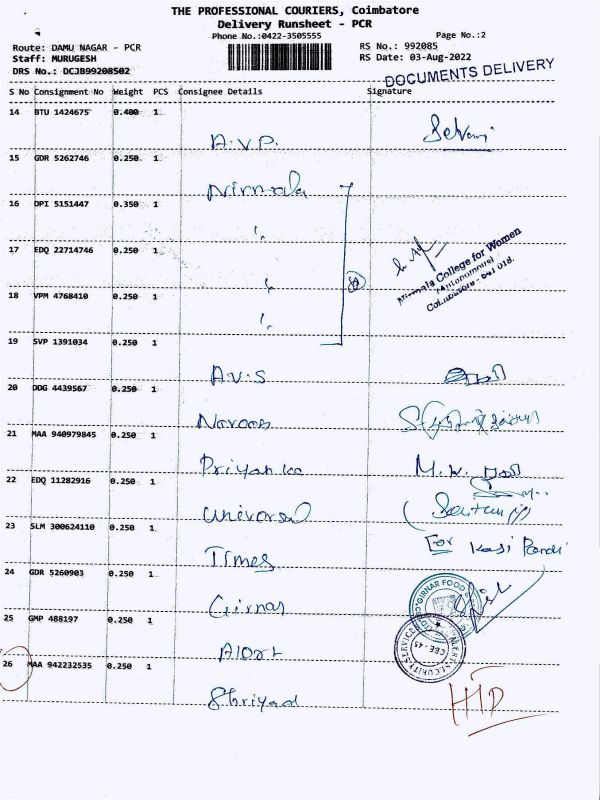 THE PROFESSIONAL COURIERS, Coimbatore
Delivery Runsheet - PCR
Phone No.:0422-3505555 Page No.:2
Route: DAMU NAGAR - PCR RS No.: 992085
Staff: MURUGESH RS Date: 03-Aug-2022
DRS No.: DCJB99208502
DOCUMENTS DELIVERY
S No Consignment No Weight PCS Consignee Details Signature
14 BTU 1424675 0.400 1
A.V.P.
15 GDR 5262746 0.250 1
Nirmala
16 DPI 5151447 0.350 1
17 EDQ 22714746 0.250 1
Nirmala College for Women
(Autonomous)
Coimbatore - 641 018.
18 VPM 4768410 0.250 1
19 SVP 1391034 0.250 1
A.V.S
20 DDG 4439567 0.250 1
21 MAA 940979845 0.250 1
Priyanka
22 EDQ 11282916 0.250 1
Universal
23 SLM 300624110 0.250 1
For Kasi Pandi
Times
24 GDR 5260903 0.250 1
GIRNAR FOOD
Girnar
25 GMP 488197 0.250 1
ALERT SECURITY SERVICE
CBE-45
Alert
26 MAA 942232535 0.250 1
Shriyad
HTD